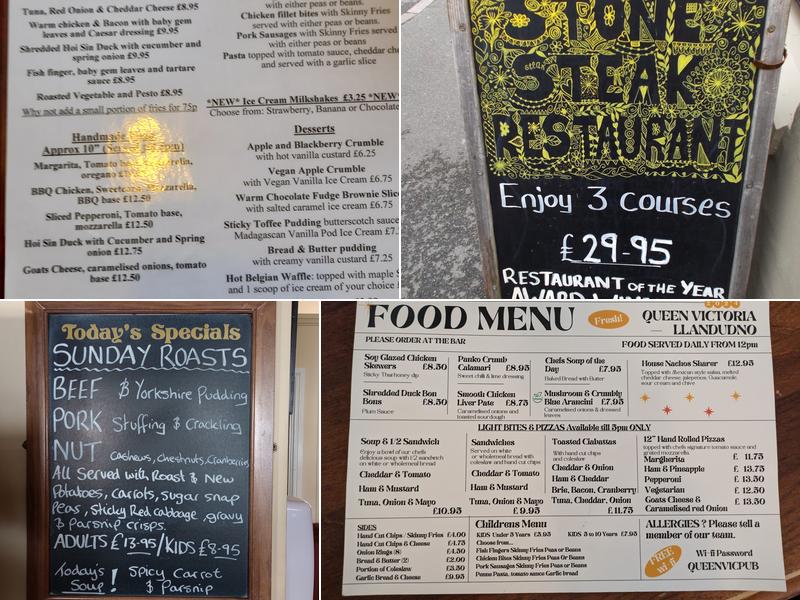 Tuna, Red Onion & Cheddar Cheese £8.95
Warm chicken & Bacon with baby gem
leaves and Caesar dressing £9.95
Shredded Hoi Sin Duck with cucumber and
spring onion £9.95
Fish finger, baby gem leaves and tartare
sauce £8.95
Roasted Vegetable and Pesto £8.95
Why not add a small portion of fries for 75p
Handmade
Approx 10"
Margarita, Tomato
oregano
BBQ Chicken, Sweetcorn, Mozzarella,
BBQ base £12.50
Sliced Pepperoni, Tomato base,
mozzarella £12.50
Hoi Sin Duck with Cucumber and Spring
onion £12.75
Goats Cheese, caramelised onions, tomato
base £12.50
with either peas or beans.
Chicken fillet bites with Skinny Fries
served with either peas or beans.
Pork Sausages with Skinny Fries served
with either peas or beans
Pasta topped with tomato sauce, cheddar
and served with a garlic slice
*NEW* Ice Cream Milkshakes £3.25 *NEW*
Choose from: Strawberry, Banana or Chocolate
Desserts
Apple and Blackberry Crumble
with hot vanilla custard £6.25
Vegan Apple Crumble
with Vegan Vanilla Ice Cream £6.75
Warm Chocolate Fudge Brownie Slice
with salted caramel ice cream £6.75
Sticky Toffee Pudding butterscotch sauce
Madagascan Vanilla Pod Ice Cream £7.
Bread & Butter pudding
with creamy vanilla custard £7.25
Hot Belgian Waffle: topped with maple
and 1 scoop of ice cream of your choice
STONE
STEAK
RESTAURANT
Enjoy 3 courses
£29-95
RESTAURANT OF THE YEAR
Today's Specials
SUNDAY ROASTS
BEEF & Yorkshire Pudding
PORK Stuffing & Crackling
NUT Cashews, chestnuts, cranberries
All Served with Roast & New
Potatoes, carrots, sugar snap
Peas, sticky Red cabbage, gravy
& Parsnip crisps.
ADULTS £13-95/KIDS £8-95
Today's Soup! Spicy Carrot
& Parsnip
2024
FOOD MENU
Fresh!
QUEEN VICTORIA
— LLANDUDNO
PLEASE ORDER AT THE BAR
FOOD SERVED DAILY FROM 12pm
Soy Glazed Chicken
Skewers £8.50
Sticky Thai honey dip
Shredded Duck Bon
Bons £8.50
Plum Sauce
Panko Crumb
Calamari £8.95
Sweet chili & lime dressing
Smooth Chicken
Liver Pate £8.75
Caramelised onions and
toasted sourdough
Chefs Soup of the
Day £7.95
Baked Bread with Butter
Mushroom & Crumbly
Blue Arancini £7.95
Caramelised onions & dressed
leaves
House Nachos Sharer £12.95
Topped with Mexican style salsa, melted
cheddar cheese, jalepenos, Guacamole,
sour cream and chive
LIGHT BITES & PIZZAS Available till 5pm ONLY
Soup & 1/2 Sandwich
Enjoy a bowl of our chefs
delicious soup with 1/2 sandwich
on white or wholemeal bread
Cheddar & Tomato
Ham & Mustard
Tuna, Onion & Mayo
£10.95
Sandwiches
Served on white
or wholemeal bread with
coleslaw and hand cut chips
Cheddar & Tomato
Ham & Mustard
Tuna, Onion & Mayo
£9.95
Toasted Ciabattas
With hand cut chips
and coleslaw
Cheddar & Onion
Ham & Cheddar
Brie, Bacon, Cranberry
Tuna, Cheddar, Onion
£11.75
12" Hand Rolled Pizzas
topped with chefs signature tomato sauce and
grated mozzarella
Margherita £ 11.75
Ham & Pineapple £ 13.75
Pepperoni £ 13.50
Vegetarian £ 12.50
Goats Cheese & £ 13.50
Caramelised red Onion
SIDES
Hand Cut Chips / Skinny Fries £4.00
Hand Cut Chips & Cheese £4.75
Onion Rings (8) £4.50
Bread & Butter (2) £2.00
Portion of Coleslaw £3.50
Garlic Bread & Cheese £9.95
Childrens Menu
KIDS Under 5 Years £5.95 KIDS 5 to 10 Years £7.95
Choose from...
Fish Fingers Skinny Fries Peas or Beans
Chicken Bites Skinny Fries Peas or Beans
Pork Sausages Skinny Fries Peas or Beans
Penne Pasta, tomato sauce Garlic bread
ALLERGIES ? Please tell a
member of our team.
FREE
wi-fi
Wi-fi Password
QUEENVICPUB